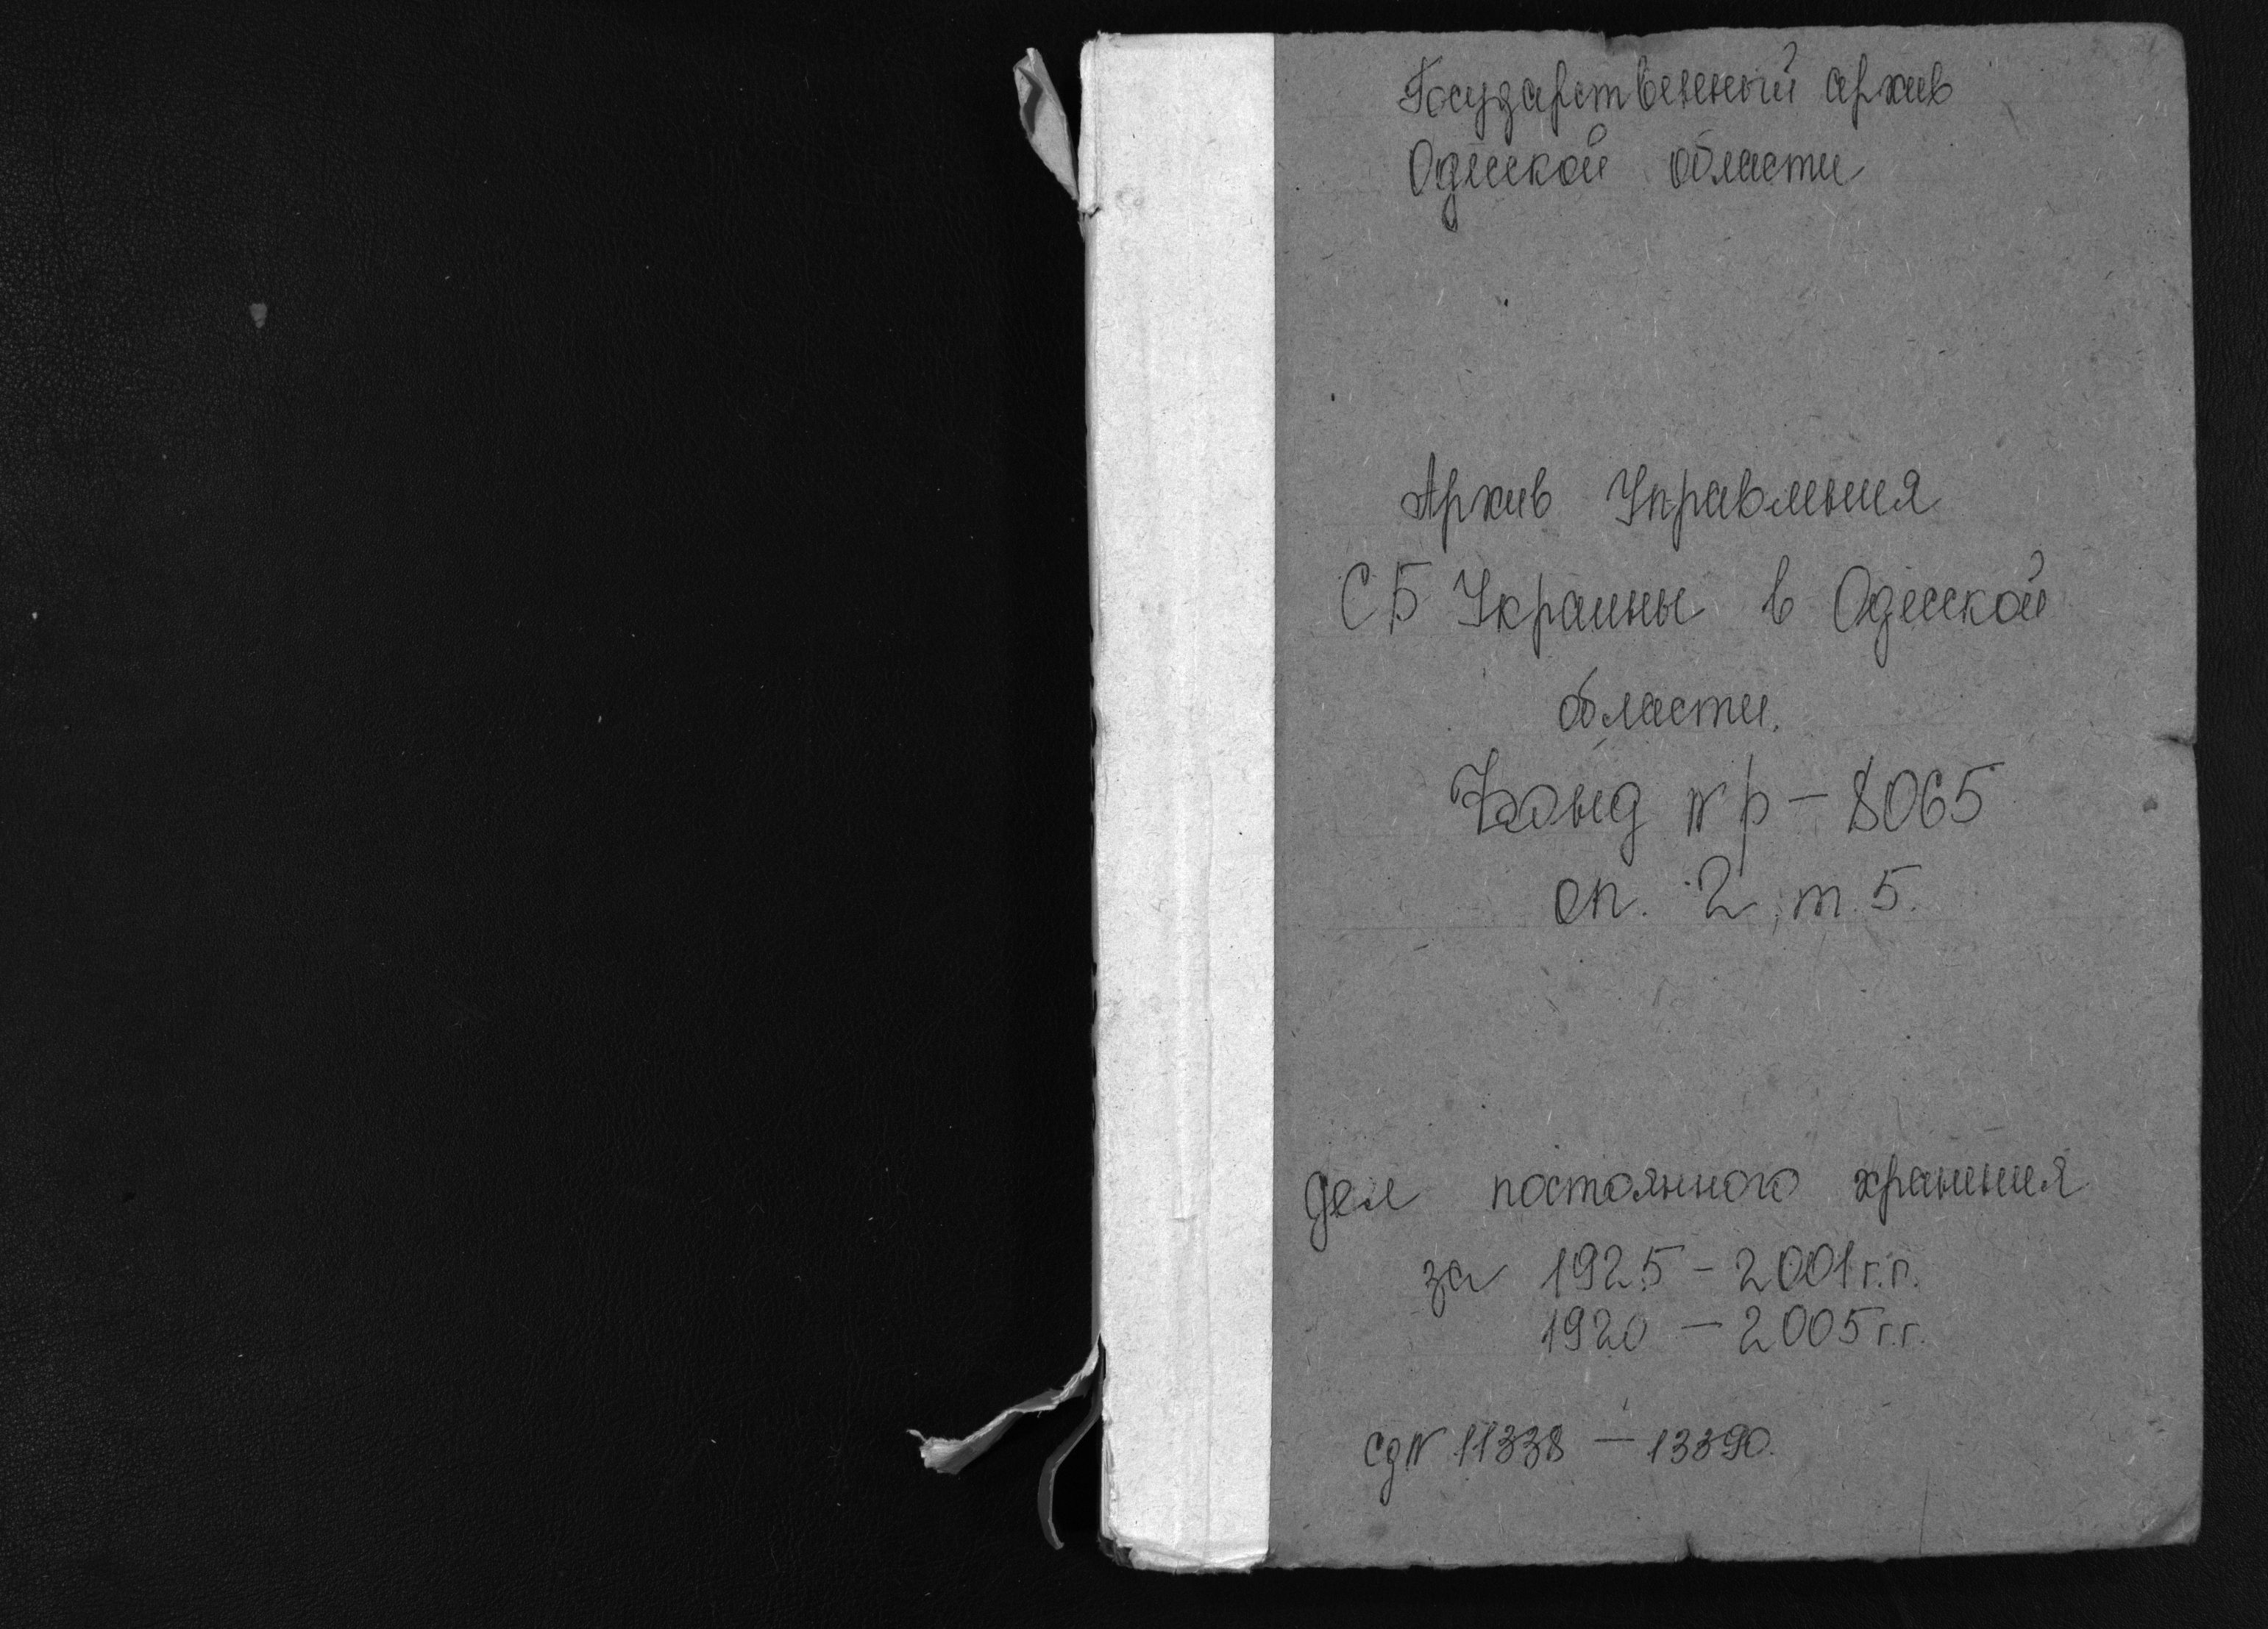 Государственный архив
Одесской области
Архив Управления
СБ Украины в Одесской
области.
Фонд № р – 8065
оп. 2, т. 5.
дел постоянного хранения
за 1925 – 2001 г.г.
1920 – 2005 г.г.
с д № 11338 – 13390.